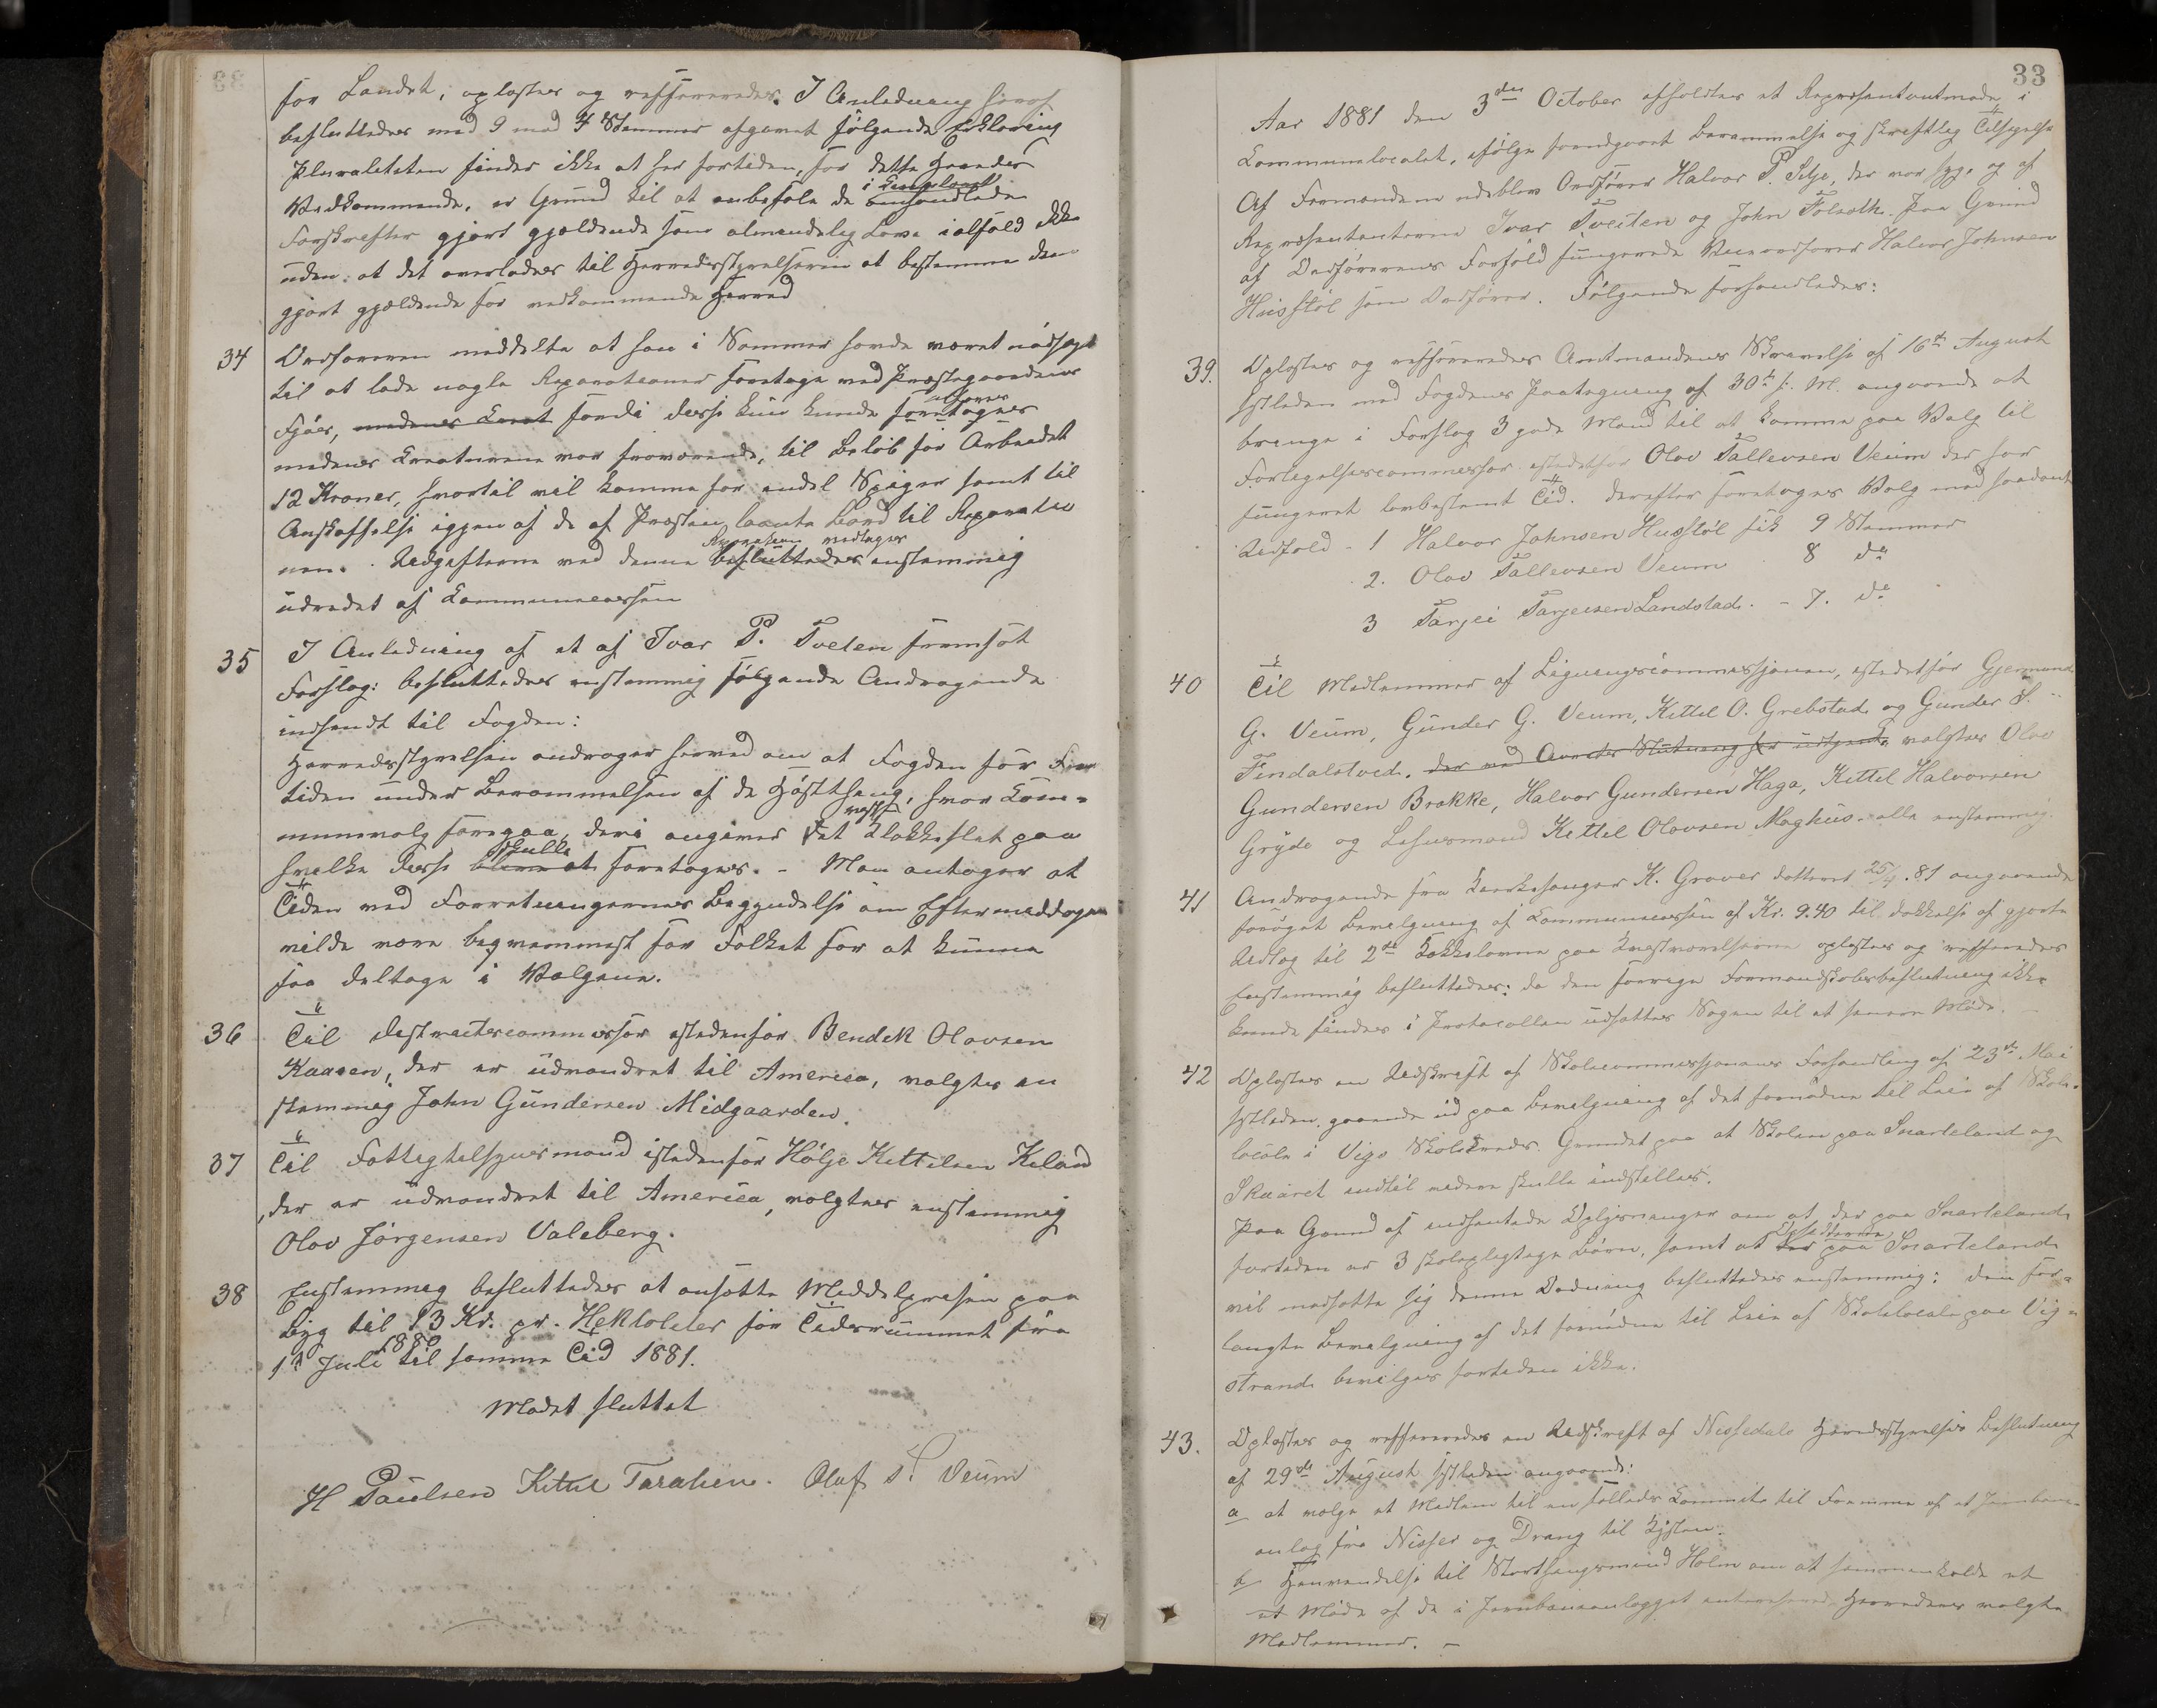 for Landet, oplæstes og refereredes. I Anledning heraf
besluttedes med 9 mod 4 Stemmer afgivet følgende Erklæring
Pluraliteten finder ikke at her fortiden, for dette Herreds
i Cirkulæret
Vedkommende, er Grund til at anbefale de omhandlede
Forskrefter gjort gjældende som almindelig Lov ialfald ikke
uden at det overlades til Herredsstyrelserne at bestemme dem
gjort gjældende for vedkommende Herred
34 Ordføreren meddelte at han i Sommer havde været nødsaget
til at lade nogle Reparationer foretage ved Præstegaardens
Fjøs, medens Kreat fordi disse kun kunde foretages
medens Kreaturene var fraværende, til Beløb for Arbeidet
12 Kroner, hvortil vil komme for endel Spiger samt til
Anskaffelse igjen af de af Præsten laante Bord til Reparatio
Reparation vedtages
nen. Udgifterne ved denne besluttedes enstemmig
udredet af Kommunecassen
35 I Anledning af et af Ivar P. Tveten fremsat
Forslag: besluttedes enstemmig følgende Andragende
indsendt til Fogden:
Herredsstyrelsen andrager herved om at Fogden for Frem
tiden under Berammelsen af de Høstthing, hvor Kom-
munevalg foregaa, deri angiver det Klokkeslet paa
skulle
hvilke disse blive at foretages. - Man antager at
Tiden ved Forretningernes Begyndelse om Eftermiddagen
vilde være beqvemmest for Folket for at kunne
faa deltage i Valgene.
36 Til Distrcitscommissær istedenfor Bendek Olavsen
Kaasen, der er udvandret til America, valgtes en
stemmig John Gundersen Midgaarden.
37 Til Fattigtilsynsmand istedenfor Hølje Kittelsen Kiland
, der er udvandret til America, valgtes enstemmig
Olav Jørgensen Valeberg.
38 Enstemmig besluttedes at ansætte Middelprisen paa
Byg til 13 Kr. pr. Hektoleter for Tidsrummet fra
1880
1st Juli til samme Tid 1881.
Mødet sluttet
H Paulsen Kittil Taraldsen. Olaf T. Veum
33
Aar 1881 den 3den October afholdtes et Repræsentantmøde i
Kommunelocalet, ifølge forudgaaet Berammelse og skriftlig Tilsigelse
Af Formændene udeblev Ordfører Halvor P. Silje, der var syg, og af
Repræsentanterne Ivar Tveiten og John Folseth. Paa Grund
af Ordførerens Forfald fungerede Viceordfører Halvor Johnsen
Husstøl som Ordfører. Følgende forhandledes:
39. Oplæstes og refereredes Amtmandens Skrivelse af 16de August
sidstleden med Fogdens Paategning af 30te s. M. angaaende at
bringe i Forslag 3 gode Mænd til at komme paa Valg til
Forligelsescommissær istedetfor Olav Tallevsen Veum der har
fungeret lovbestemt Tid. Derefter foretoges Valg med saadant
Udfald - 1 Halvor Johnsen Husstøl fik 9 Stemmer
2. Olav Tallevsen Veum 8 do
3 Tarjei Tarjeisen Landstad. - 7. do
40 Til Medlemmer af Ligningscommissjonen, istedetfor Gjermund
G. Veum, Gunder G. Veum, Kittil O. Grebstad og Gunder S.
Findalstved, valgtes Olav
Gundersen Brække, Halvor Gundersen Haga, Kittil Halvorsen
Gryde og Lehnsmand Kittil Olavsen Moghus - alle enstemmig.
41 Andragende fra Kirkesanger K. Graver datteret 25/4.81 angaaende
forøget Bevilgning af Kommunecassen af Kr. 9.40 til Dækkelse af gjorte
Udlæg til 2de Kakkelovne paa Kvestværelserne oplæstes og refereredes
Enstemmig besluttedes: da den forrige Formandskabsbeslutning ikke
kunde findes i Protocollen udsættes Sagen til et senere Møde.
42 Oplæstes en Udskrift af Skolecommissjonens Forhandling af 23de Mai
sidstleden, gaaende ud paa Bevilgning af det fornødne til Leie af Skole-
locale i Vigs Skolekreds. Grundet paa at Skolen paa Snarteland og
Skaaret indtil videre skulle indstilles.
Paa Grund af indhentede Oplysninger om at der paa Snarteland
Opsidderne
fortiden er 3 skolepligtige Børn, samt at der paa Snarteland
vil modsætte sig denne Ordning besluttedes enstemmig: Den for-
langte Bevilgning af det fornødne til Leie af Skolelocale paa Vig-
strand bevilges fortiden ikke.
43. Oplæstes og refereredes en Udskrift af Nissedals Herredsstyrelses Beslutning
af 29de August sidstleden angaaende:
a at vælge et Medlem til en fælleds Kommite til Fremme af et Jernbane-
anlæg fra Nisser og Drang til Kysten.
b Henvendelse til Storthingsmand Holm om at sammenkalde et
et Møde af de i Jernbaneanlægget interesserede Herreders valgte
Medlemmer. -